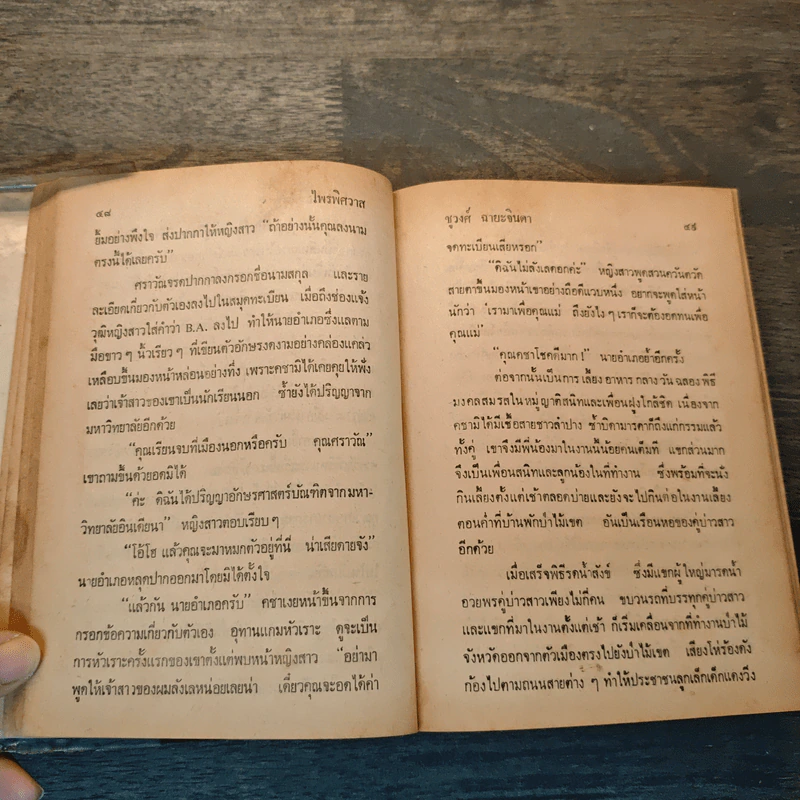 ๔๘
ไพรพิศวาส
ยิ้มอย่างพึงใจ ส่งปากกาให้หญิงสาว “ถ้าอย่างนั้นคุณลงนาม
ตรงนี้ได้เลยครับ”
ศราวัณจรดปากกาลงกรอกชื่อนามสกุล และราย
ละเอียดเกี่ยวกับตัวเองลงไปในสมุดทะเบียน เมื่อถึงช่องแจ้ง
วุฒิหญิงสาวใส่คำว่า B.A. ลงไป ทำให้นายอำเภอซึ่งแลตาม
มือขาว ๆ นิ้วเรียว ๆ ที่เขียนตัวอักษรงดงามอย่างคล่องแคล่ว
เหลือบขึ้นมองหน้าหล่อนอย่างทึ่ง เพราะคชามิได้เคยคุยให้ฟัง
เลยว่าเจ้าสาวของเขาเป็นนักเรียนนอก ซ้ำยังได้ปริญญาจาก
มหาวิทยาลัยอีกด้วย
“คุณเรียนจบที่เมืองนอกหรือครับ คุณศราวัณ”
เขาถามขึ้นด้วยอดมิได้
“ค่ะ ดิฉันได้ปริญญาอักษรศาสตร์บัณฑิตจากมหา-
วิทยาลัยอินเดียนา” หญิงสาวตอบเรียบ ๆ
“โอ้โฮ แล้วคุณจะมาหมกตัวอยู่ที่นี่ น่าเสียดายจัง”
นายอำเภอหลุดปากออกมาโดยมิได้ตั้งใจ
“แล้วกัน นายอำเภอครับ” คชาเงยหน้าขึ้นจากการ
กรอกข้อความเกี่ยวกับตัวเอง อุทานแกมหัวเราะ ดูจะเป็น
การหัวเราะครั้งแรกของเขาตั้งแต่พบหน้าหญิงสาว “อย่ามา
พูดให้เจ้าสาวของผมลังเลหน่อยเลยน่า เดี๋ยวคุณจะอดได้ค่า
ชูวงศ์ ฉายะจินดา
๔๙
จดทะเบียนเสียหรอก”
“ดิฉันไม่ลังเลดอกค่ะ” หญิงสาวพูดสวนควันควัด
สายตาขึ้นมองหน้าเขาอย่างถือดีแวบหนึ่ง อยากจะพูดใส่หน้า
นักว่า ‘เรามาเพื่อคุณแม่ ถึงยังไง ๆ เราก็จะต้องอดทนเพื่อ
คุณแม่’
“คุณคชาโชคดีมาก !” นายอำเภอย้ำอีกครั้ง
ต่อจากนั้นเป็นการ เลี้ยง อาหาร กลาง วัน ฉลอง พิธี
มงคลสมรสในหมู่ญาติสนิทและเพื่อนฝูงใกล้ชิด เนื่องจาก
คชามิได้มีเชื้อสายชาวลำปาง ซ้ำบิดามารดาก็ถึงแก่กรรมแล้ว
ทั้งคู่ เขาจึงมีพี่น้องมาในงานนี้น้อยคนเต็มที แขกส่วนมาก
จึงเป็นเพื่อนสนิทและลูกน้องในที่ทำงาน ซึ่งพร้อมที่จะนั่ง
กินเลี้ยงตั้งแต่เช้าตลอดบ่ายและยังจะไปกินต่อในงานเลี้ยง
ตอนค่ำที่บ้านพักป่าไม้เขต อันเป็นเรือนหอของคู่บ่าวสาว
อีกด้วย
เมื่อเสร็จพิธีรดน้ำสังข์ ซึ่งมีแขกผู้ใหญ่มารดน้ำ
อวยพรคู่บ่าวสาวเพียงไม่กี่คน ขบวนรถที่บรรทุกคู่บ่าวสาว
และแขกที่มาในงานตั้งแต่เช้า ก็เริ่มเคลื่อนจากที่ทำงานป่าไม้
จังหวัดออกจากตัวเมืองตรงไปยังป่าไม้เขต เสียงโห่ร้องดัง
ก้องไปตามถนนสายต่าง ๆ ทำให้ประชาชนลูกเล็กเด็กแดงวิ่ง